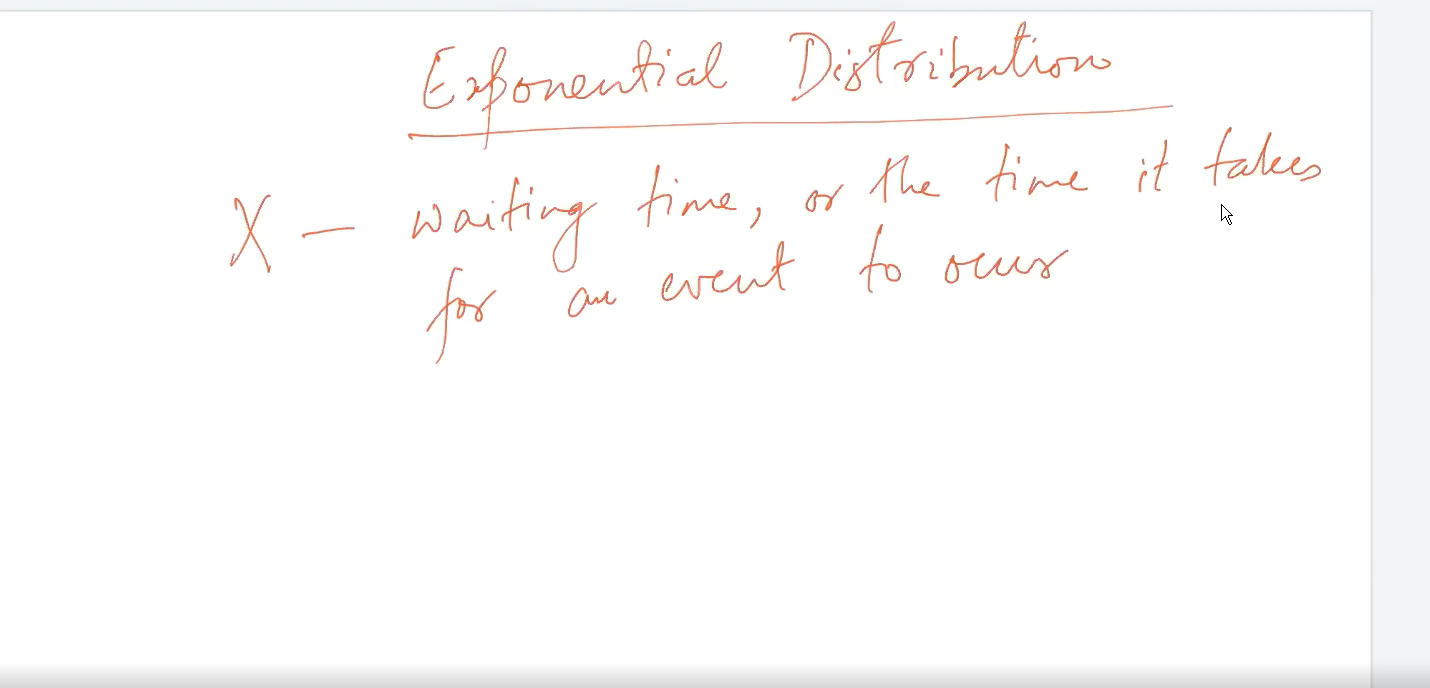 Exponential Distribution
X — waiting time, or the time it takes
for an event to occur